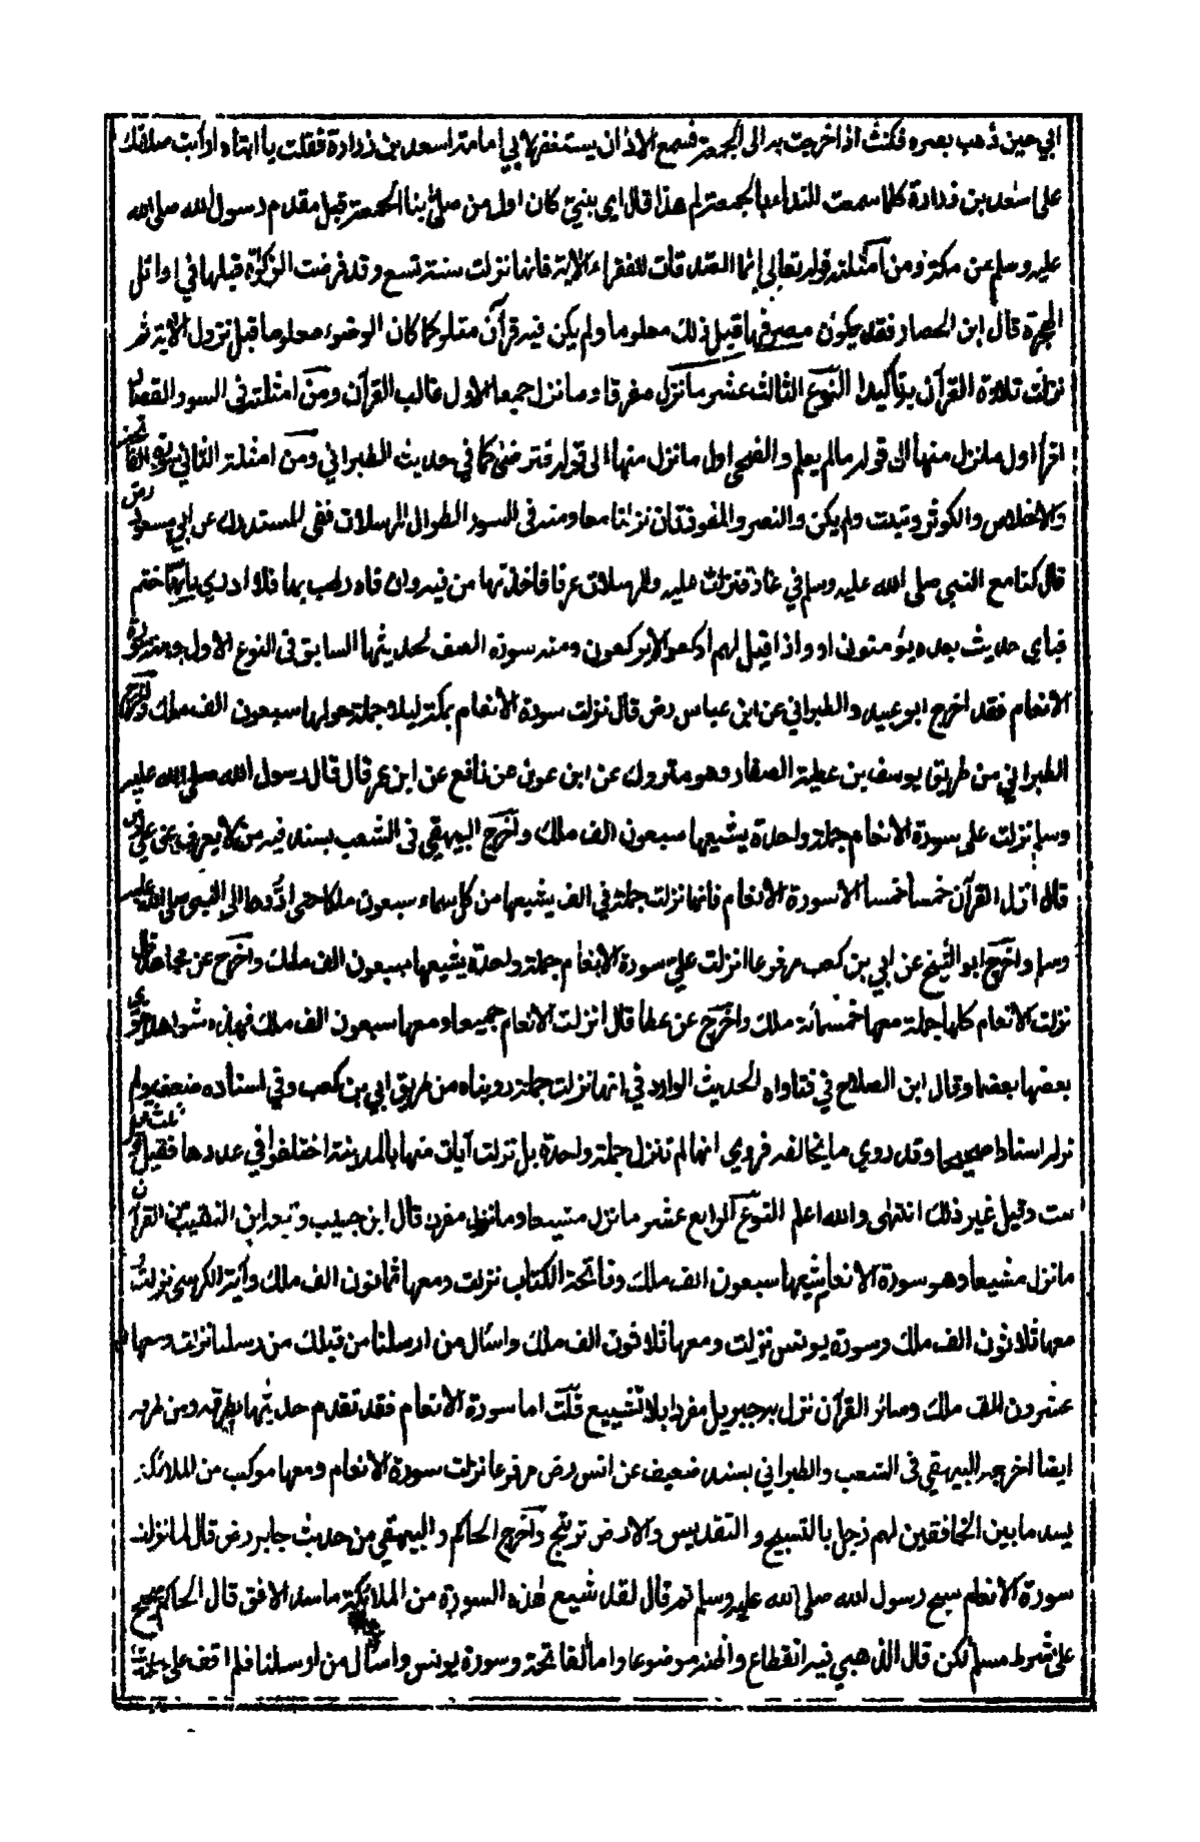 ابي حين ذهب بصره فكنت اذا خرجت به الى الجمعة فسمع الاذان يستغفر لابي امامة اسعد بن زرارة فقلت يا ابتاه ارأيت صلاتك
على اسعد بن زرارة كلما سمعت النداء بالجمعة لم هذا قال اي بني كان اول من صلى بنا الجمعة قبل مقدم رسول الله صلى الله
عليه وسلم من مكة ومن امثلته قوله تعالى إنما الصدقات للفقراء الآية فانها نزلت سنة تسع وقد فرضت الزكوة قبلها في اوائل
الهجرة قال ابن الحصار فقد يكون مصرفها قبل ذلك معلوما ولم يكن فيه قرآن متلو كما كان الوضوء معلوما قبل نزول الآية ثم
نزلت تلاوة القرآن تأكيدا النوع الثالث عشر ما نزل مفرقا وما نزل جميعا الاول غالب القرآن ومن امثلته في السور القصار
اقرأ اول ما نزل منها الى قوله مالم يعلم والضحى اول ما نزل منها الى قوله فترضى كما في حديث الطبراني ومن امثلة الثاني سورة الفاتحة
والاخلاص والكوثر وتبت ولم يكن والنصر والمعوذتان نزلتا معا ومنه في السور الطوال المرسلات ففي المستدرك عن ابي مسعود رض
قال كنا مع النبي صلى الله عليه وسلم في غار فنزلت عليه والمرسلات عرفا فاخذتها من فيه وان فاه رطب بها فلا ادري بايتها ختم
فباي حديث بعده يؤمنون او واذا قيل لهم اركعوا لا يركعون ومنه سورة الصف لحديثها السابق في النوع الاول ومنه سورة
الانعام فقد اخرج ابو عبيد والطبراني عن ابن عباس رض قال نزلت سورة الانعام بمكة ليلا جملة حولها سبعون الف ملك واخرج
الطبراني من طريق يوسف بن عطية الصفار وهو متروك عن ابن عون عن نافع عن ابن عمر قال قال رسول الله صلى الله عليه
وسلم نزلت علي سورة الانعام جملة واحدة يشيعها سبعون الف ملك واخرج البيهقي في الشعب بسند فيه من لا يعرف عن علي رض
قال انزل القرآن خمسا خمسا الا سورة الانعام فانها نزلت جملة في الف يشيعها من كل سماء سبعون ملكا حتى ادوها الى النبي صلى الله عليه
وسلم واخرج ابو الشيخ عن ابي بن كعب مرفوعا انزلت علي سورة الانعام جملة واحدة يشيعها سبعون الف ملك واخرج عن مجاهد قال
نزلت الانعام كلها جملة معها خمسمائة ملك واخرج عن عطا قال انزلت الانعام جميعا ومعها سبعون الف ملك فهذه شواهد يقوي
بعضها بعضا وقال ابن الصلاح في فتاواه الحديث الوارد في انها نزلت جملة رويناه من طريق ابي بن كعب وفي اسناده ضعف ولم
نر له اسنادا صحيحا وقد روي ما يخالفه فروي انها لم تنزل جملة واحدة بل نزلت آيات منها بالمدينة اختلفوا في عددها فقيل ثلث وقيل
ست وقيل غير ذلك انتهى والله اعلم النوع الرابع عشر ما نزل مشيعا وما نزل مفردا قال ابن حبيب وتبعه ابن النقيب من القرآن
ما نزل مشيعا وهو سورة الانعام شيعها سبعون الف ملك وفاتحة الكتاب نزلت ومعها ثمانون الف ملك وآية الكرسي نزلت
معها ثلاثون الف ملك وسورة يونس نزلت ومعها ثلاثون الف ملك واسأل من ارسلنا من قبلك من رسلنا نزلت ومعها
عشرون الف ملك وسائر القرآن نزل به جبريل مفردا بلا تشييع قلت اما سورة الانعام فقد تقدم حديثها بطرقه ومن طرقه
ايضا اخرجه البيهقي في الشعب والطبراني بسند ضعيف عن انس رض مرفوعا نزلت سورة الانعام ومعها موكب من الملائكة
يسد ما بين الخافقين لهم زجل بالتسبيح والتقديس والارض ترتج واخرج الحاكم والبيهقي من حديث جابر رض قال لما نزلت
سورة الانعام سبح رسول الله صلى الله عليه وسلم ثم قال لقد شيع هذه السورة من الملائكة ما سد الافق قال الحاكم صحيح
على شرط مسلم لكن قال الذهبي فيه انقطاع واظنه موضوعا واما الفاتحة وسورة يونس واسأل من ارسلنا فلم اقف على